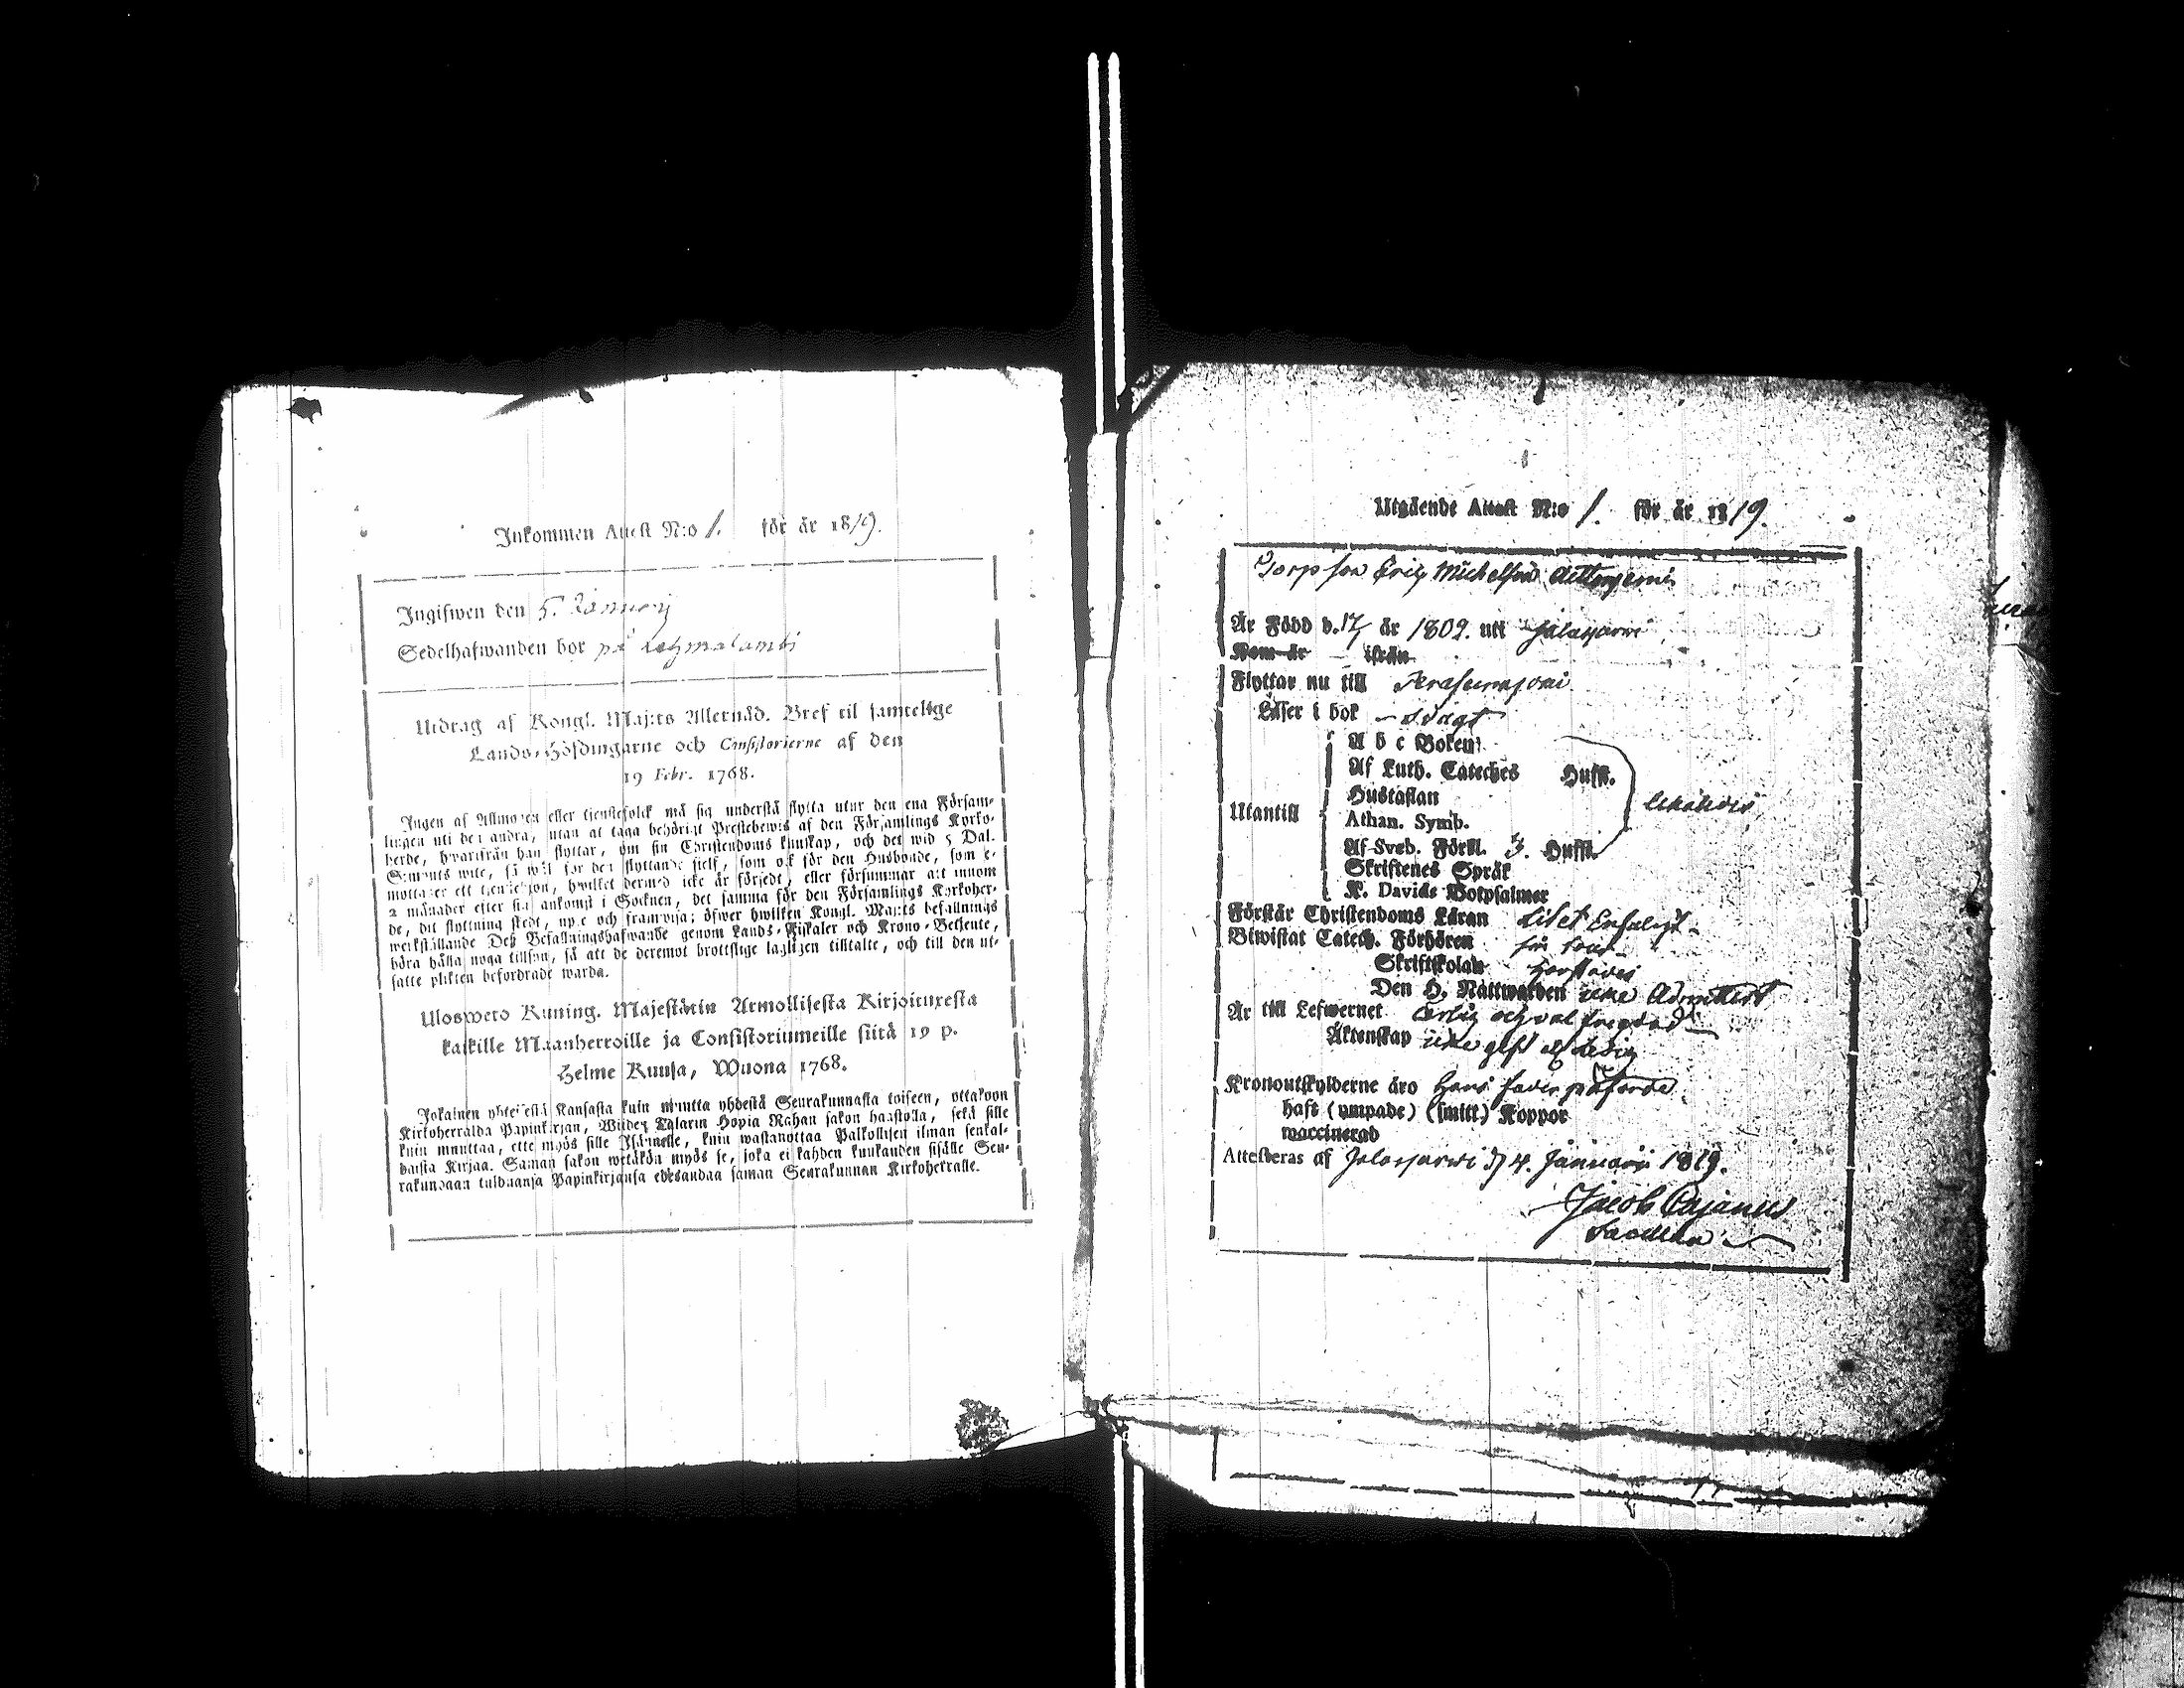 Inkommen Attest N:o 1. för år 1819.
Ingifwen den 5. Januarij
Sedelhafwanden bor på
Utdrag af Kongl. Maj:ts Allernåd. Bref til samtelige
Lands-Höfdingarne och Consistorierne af den
19 Febr. 1768.
Ingen af Allmogen eller tjenstefolck må sig understå flytta utur den ena Försam-
lingen uti den andra, utan at taga behörigt Prestebewis af den Församlings Kyrko-
herde, hwarifrån han flyttar, om sin Christendoms kunskap, och det wid 5 Dal.
S:mynts wite, så wäl för den flyttande sielf, som ock för den Husbonde, som e-
mottager ett tjenstehjon, hwilket dermed icke är försedt, eller försummar att innom
2 månader efter sin ankomst i Socknen, det samma för den Församlings Kyrkoher-
de, dit flyttning skedt, upte och framwisa; öfwer hwilken Kongl. Maj:ts befallnings
werkställande Deß Befallningshafwande genom Lands-Fiskaler och Krono-Betjente,
böra hålla noga tillsyn, så att de deremot brottslige lagligen tilltalte, och till den ut-
satte plikten befordrade warda.
Ulosweto Kuning. Majestätin Armollisesta Kirjoituxesta
kaikille Maanherroille ja Consistoriumeille siitä 19 p.
Helme Kuusa, Wuona 1768.
Jokainen yhteisestä Kansasta kuin muutta yhdestä Seurakunnasta toiseen, ottakoon
Kirkoherralda Papinkirjan, Wijden Talarin Hopia Rahan sakon haastolla, sekä sille
kuin muuttaa, ette myös sille Isännelle, kuin wastanottaa Palkollisen ilman senkal-
daista Kirjaa. Saman sakon wetäkön myös se, joka ei kahden kuukauden sisälle Seu-
rakundaan tulduansa Papinkirjansa edesandaa saman Seurakunnan Kirkoherralle.
Utgående Attest N:o 1. för år 1819.
Torp son Eric Michelson
Är Född d. 17 år 1802. uti Jalasjarvi
Kom år ifrån
Flyttar nu till
Läser i bok svagt
A b c Boken
Af Luth. Cateches Hufst.
Hustaflan
Utantill
Athan. Symb.
Af Sveb. Förkl. 3. Hufst.
Skriftenes Språk
K. Davids Botpsalmer
Förstår Christendoms Läran litet Enfaligt
Biwistat Catech. Förhören
Skriftskolan
Den H. Nattwarden icke Admitterd
Är till Lefwernet ärlig och väl
Äktenskap icke gift
Kronoutskylderne äro Hans fader påförde
haft (ympade) (smitt) Koppor
waccinerad
Attesteras af Jalasjarwi d 4. Januarii 1819.
Jacob Cajanus